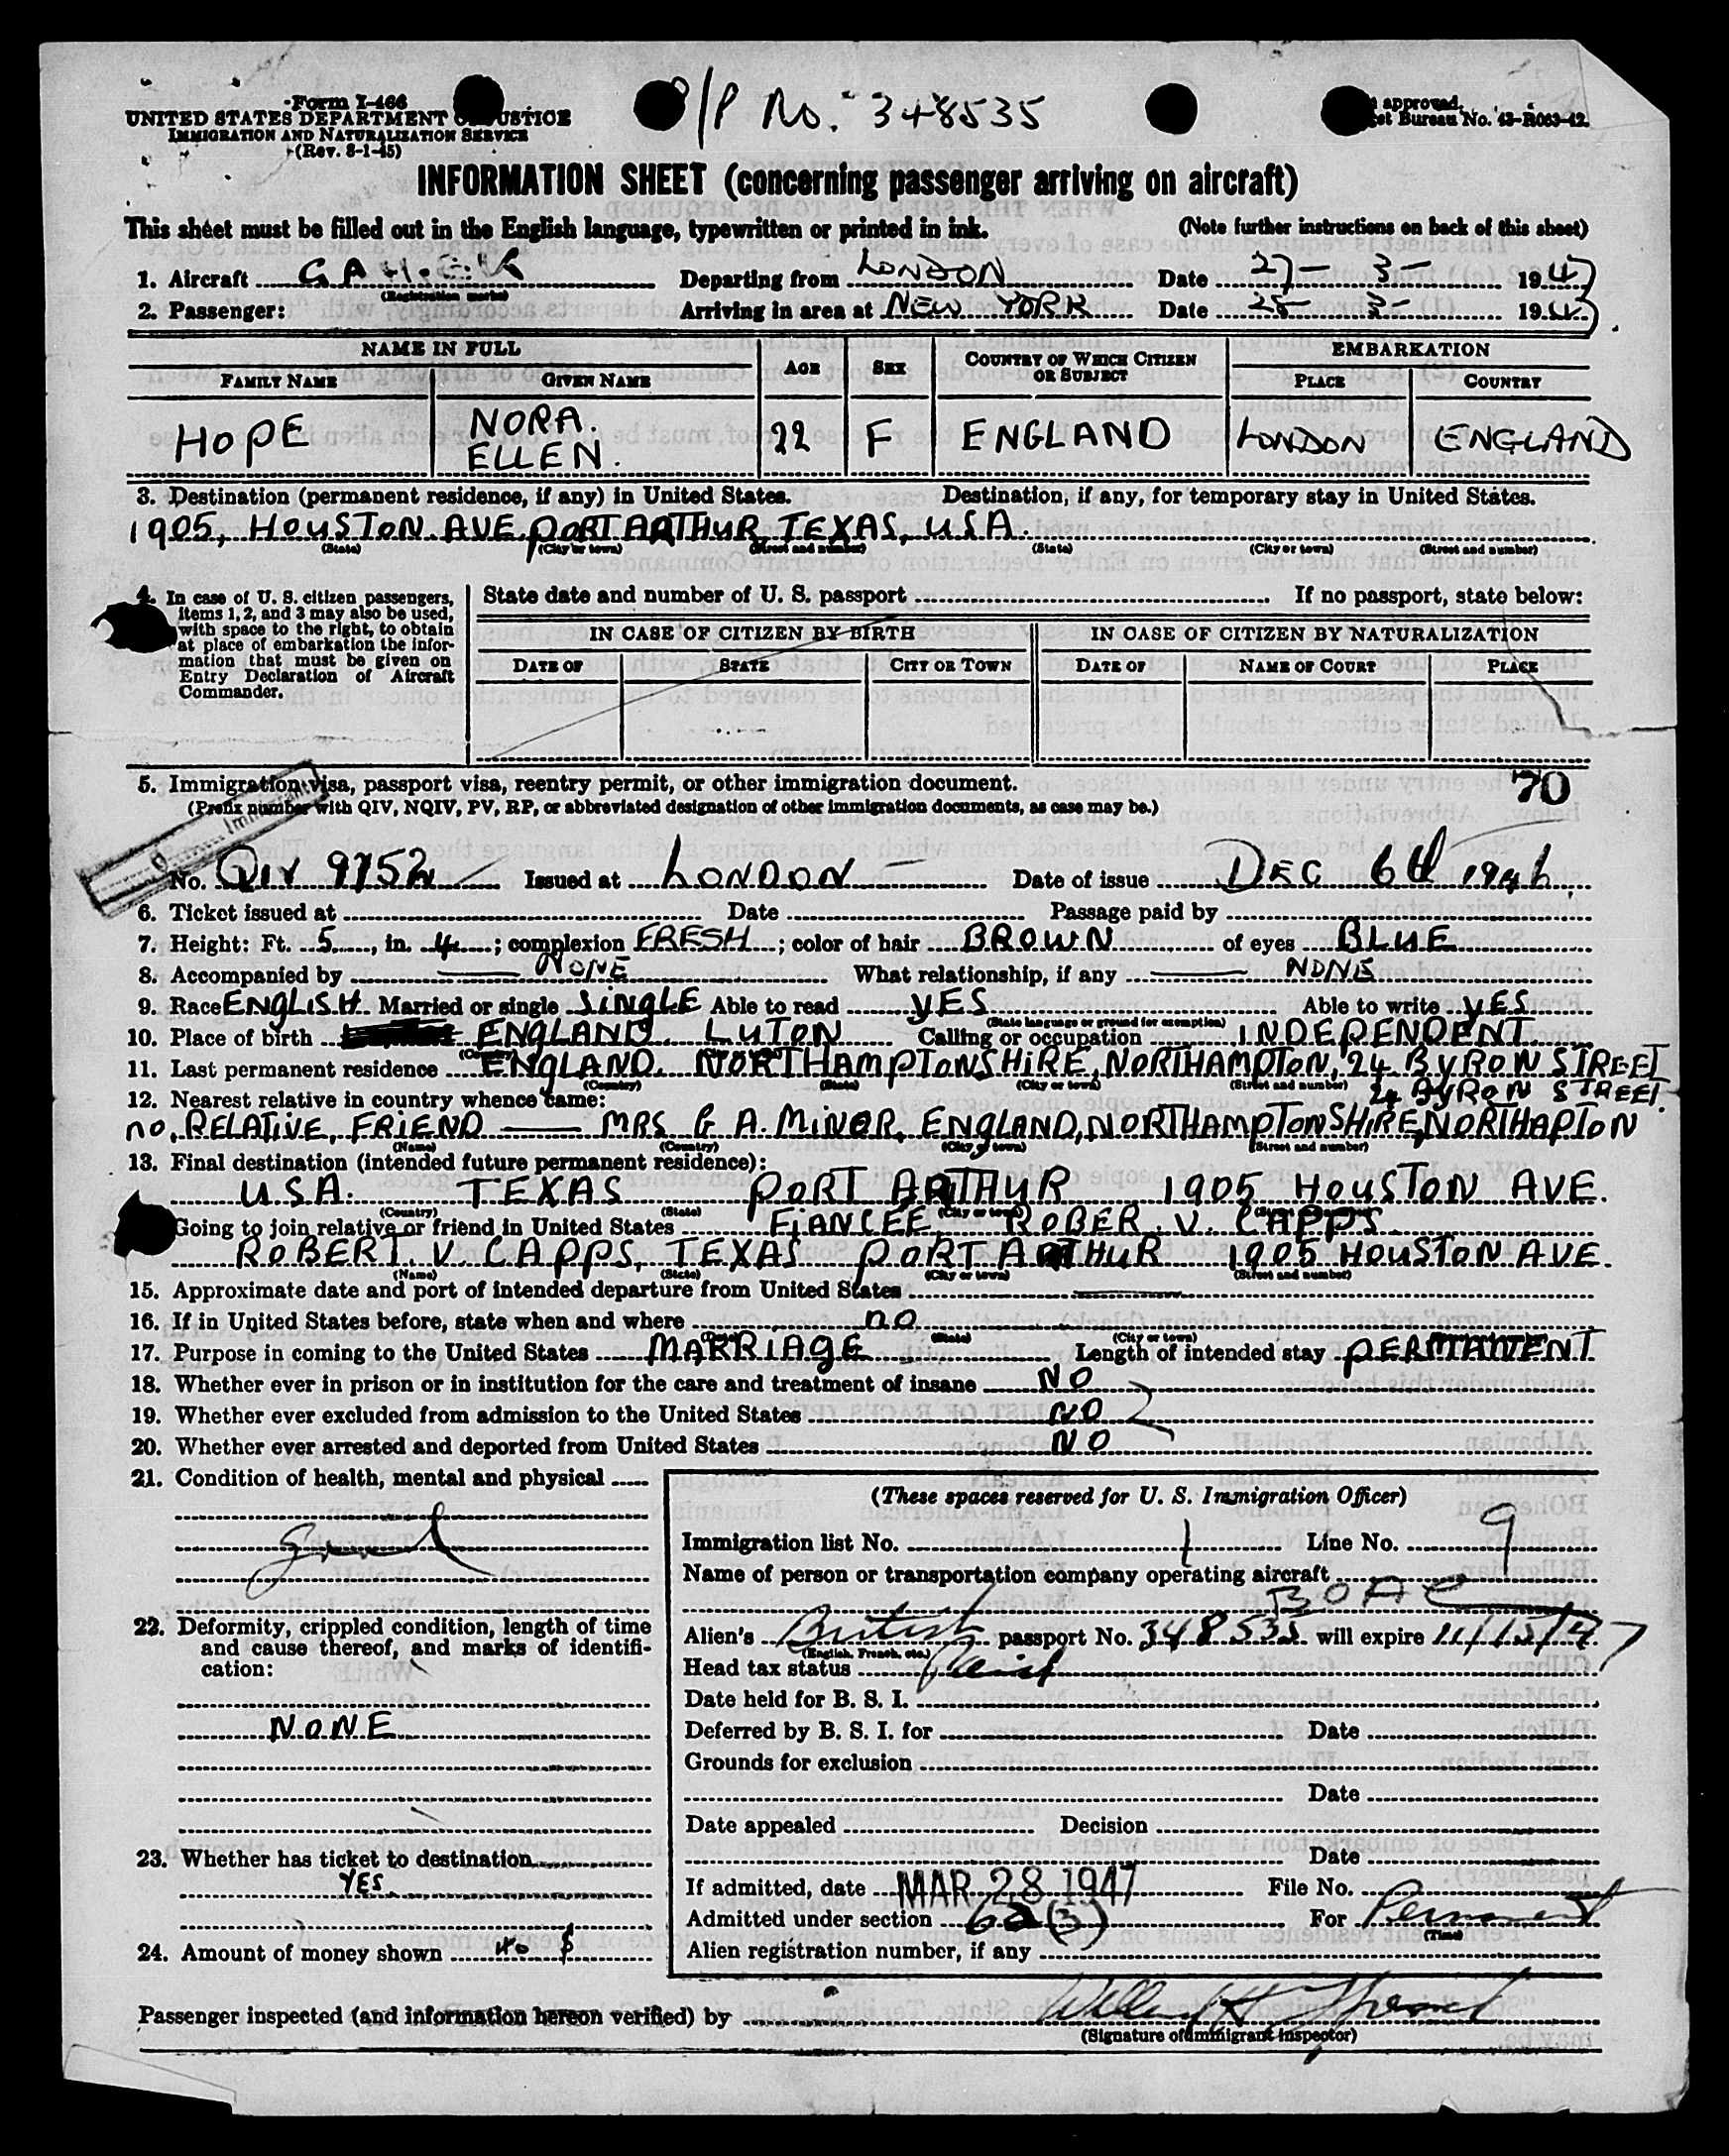 Form I-466
UNITED STATES DEPARTMENT OF JUSTICE
IMMIGRATION AND NATURALIZATION SERVICE
(Rev. 8-1-45)
P No. 348535
approved.
Bureau No. 43-R063-42.
INFORMATION SHEET (concerning passenger arriving on aircraft)
This sheet must be filled out in the English language, typewritten or printed in ink. (Note further instructions on back of this sheet)
1. Aircraft Departing from LONDON Date 27-3- 1947
(Registration marks)
2. Passenger: Arriving in area at NEW YORK Date 28-3- 1947
NAME IN FULL AGE SEX COUNTRY OF WHICH CITIZEN OR SUBJECT EMBARKATION
FAMILY NAME GIVEN NAME PLACE COUNTRY
HOPE NORA. ELLEN. 22 F ENGLAND LONDON ENGLAND
3. Destination (permanent residence, if any) in United States. Destination, if any, for temporary stay in United States.
1905, HOUSTON. AVE. PORT ARTHUR, TEXAS, USA.
(State) (City or town) (Street and number) (State) (City or town) (Street and number)
4. In case of U. S. citizen passengers, items 1, 2, and 3 may also be used, with space to the right, to obtain at place of embarkation the information that must be given on Entry Declaration of Aircraft Commander.
State date and number of U. S. passport If no passport, state below:
IN CASE OF CITIZEN BY BIRTH IN CASE OF CITIZEN BY NATURALIZATION
DATE OF STATE CITY OR TOWN DATE OF NAME OF COURT PLACE
5. Immigration visa, passport visa, reentry permit, or other immigration document. 70
(Prefix number with QIV, NQIV, PV, RP, or abbreviated designation of other immigration documents, as case may be.)
No. QIV 9752 Issued at LONDON Date of issue DEC 6th 1946.
6. Ticket issued at Date Passage paid by
7. Height: Ft. 5, in. 4; complexion FRESH; color of hair BROWN of eyes BLUE
8. Accompanied by NONE What relationship, if any NONE
9. Race ENGLISH Married or single SINGLE Able to read YES Able to write YES
(State language or ground for exemption)
10. Place of birth ENGLAND. LUTON Calling or occupation INDEPENDENT.
11. Last permanent residence ENGLAND. NORTHAMPTONSHIRE, NORTHAMPTON, 24 BYRON STREET
(Country) (State) (City or town) (Street and number)
12. Nearest relative in country whence came: 24 BYRON STREET.
NO, RELATIVE, FRIEND — MRS G A. MINOR, ENGLAND, NORTHAMPTONSHIRE, NORTHAPTON
(Name) (Country) (City or town) (Street and number)
13. Final destination (intended future permanent residence):
U.S.A. TEXAS PORT ARTHUR 1905 HOUSTON AVE.
(Country) (State) (City or town) (Street and number)
Going to join relative or friend in United States FIANCEE ROBER. V. CAPPS
ROBERT. V. CAPPS, TEXAS PORT ARTHUR 1905 HOUSTON AVE.
(Name) (State) (City or town) (Street and number)
15. Approximate date and port of intended departure from United States
16. If in United States before, state when and where NO
(State) (City or town)
17. Purpose in coming to the United States MARRIAGE Length of intended stay PERMANENT
18. Whether ever in prison or in institution for the care and treatment of insane NO
19. Whether ever excluded from admission to the United States NO
20. Whether ever arrested and deported from United States NO
21. Condition of health, mental and physical
Good
22. Deformity, crippled condition, length of time and cause thereof, and marks of identification:
NONE
23. Whether has ticket to destination
YES
24. Amount of money shown No $
(These spaces reserved for U. S. Immigration Officer)
Immigration list No. 1 Line No. 9
Name of person or transportation company operating aircraft
BOAC
Alien's British passport No. 348535 will expire 11/15/47
(English, French, etc.)
Head tax status Paid
Date held for B. S. I.
Deferred by B. S. I. for Date
Grounds for exclusion
Date
Date appealed Decision
Date
If admitted, date MAR 28 1947 File No.
Admitted under section 6a(3) For Permanent
(Time)
Alien registration number, if any
Passenger inspected (and information hereon verified) by
(Signature of immigrant inspector)